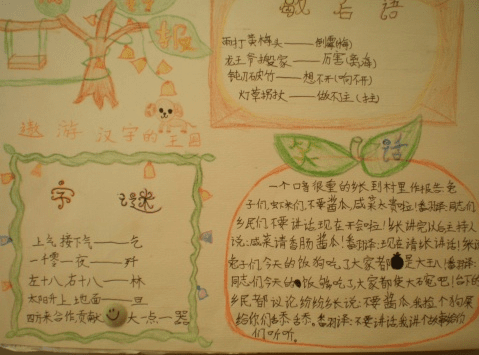 报
歇后语
雨打黄梅头——倒霉(梅)
龙王爷搬家——厉害(离海)
钝刀破竹——想不开(
灯草拐杖——做不主(
遨游汉字的王国
字 谜
上气接下气——乞
一千零一夜——歼
左十八右十八——林
太阳升上地面——旦
四方来合作,贡献大一点——器
笑话
一个口音很重的乡长到村里作报告:兔
子们,虾米们,不要酱瓜,咸菜太贵啦!(翻译:同志们,
乡民们,不要讲话,现在开会啦!)乡长讲完以后主持人
说:咸菜请香肠酱瓜!(翻译:现在请乡长讲话!)乡长
兔子们,今天的饭狗吃了,大家都是大王八!(翻译:
同志们,今天的饭够吃了,大家都使大碗吧!)台下的
乡民都议论纷纷,乡长说:不要酱瓜,我捡个狗屎
给你们舔舔。翻译:不要讲话,我讲个故事给你
们听听。